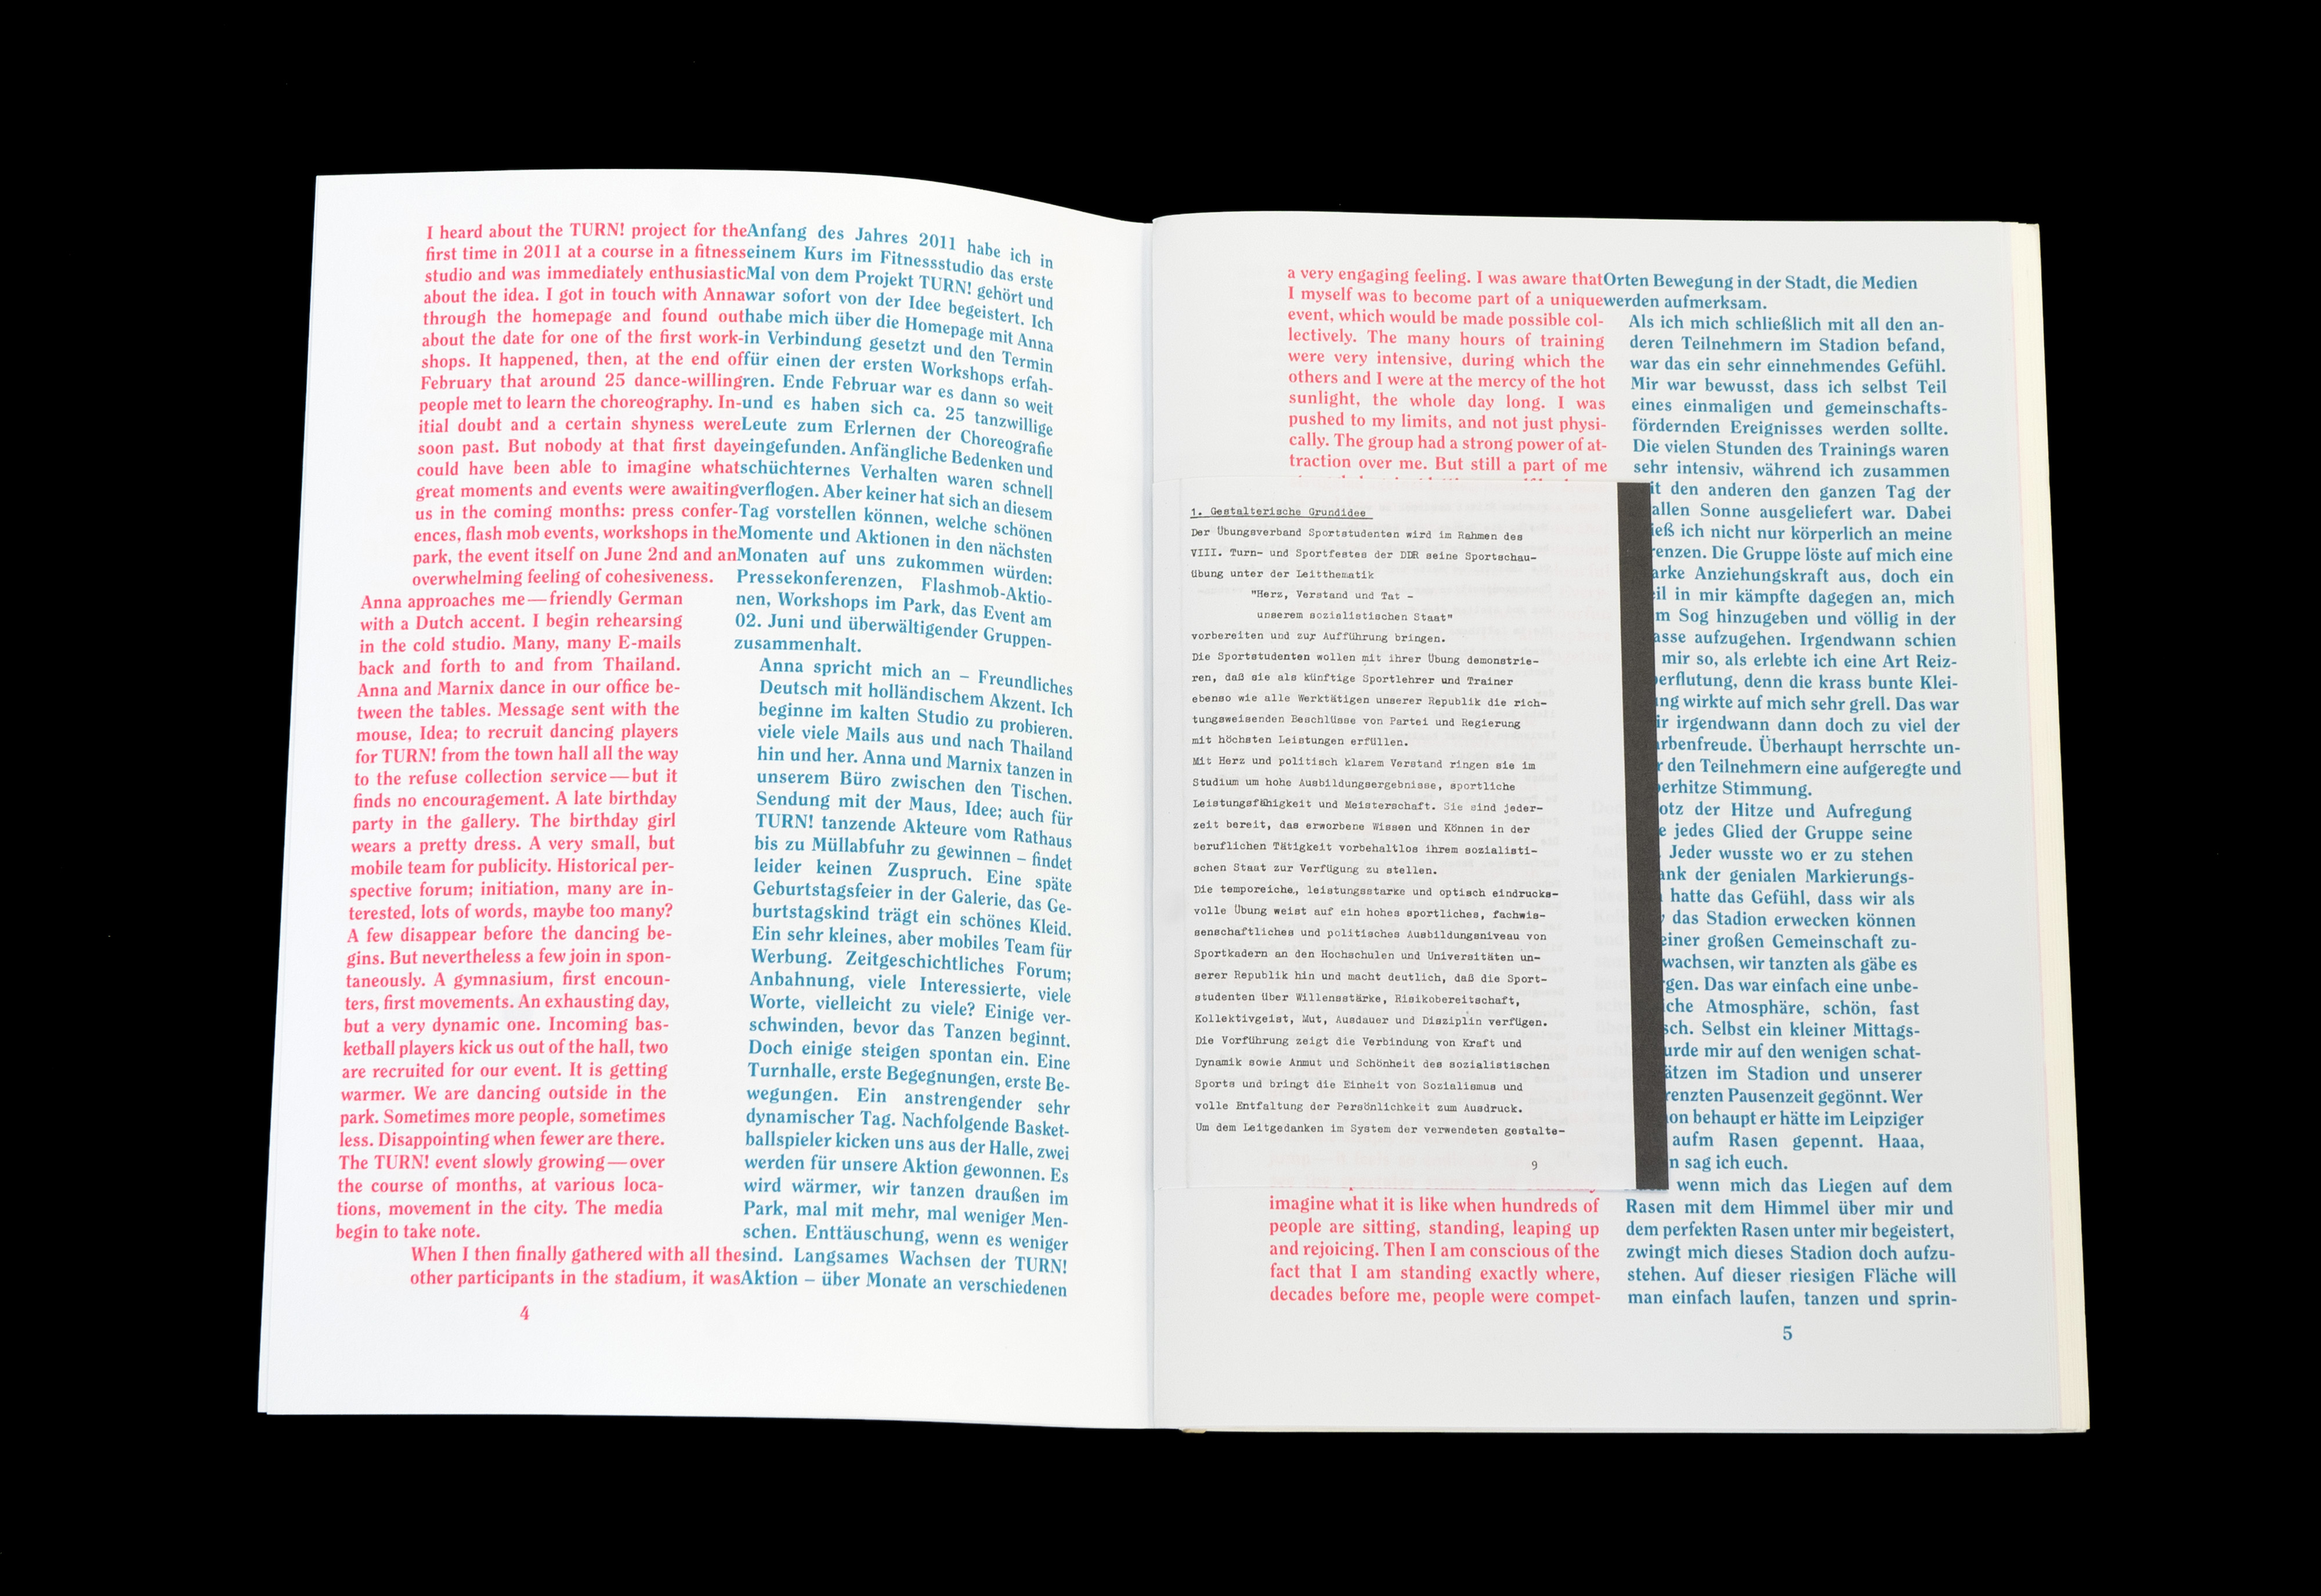 I heard about the TURN! project for the
first time in 2011 at a course in a fitness
studio and was immediately enthusiastic
about the idea. I got in touch with Anna
through the homepage and found out
about the date for one of the first work-
shops. It happened, then, at the end of
February that around 25 dance-willing
people met to learn the choreography. In-
itial doubt and a certain shyness were
soon past. But nobody at that first day
could have been able to imagine what
great moments and events were awaiting
us in the coming months: press confer-
ences, flash mob events, workshops in the
park, the event itself on June 2nd and an
overwhelming feeling of cohesiveness.
Anna approaches me — friendly German
with a Dutch accent. I begin rehearsing
in the cold studio. Many, many E-mails
back and forth to and from Thailand.
Anna and Marnix dance in our office be-
tween the tables. Message sent with the
mouse, Idea; to recruit dancing players
for TURN! from the town hall all the way
to the refuse collection service — but it
finds no encouragement. A late birthday
party in the gallery. The birthday girl
wears a pretty dress. A very small, but
mobile team for publicity. Historical per-
spective forum; initiation, many are in-
terested, lots of words, maybe too many?
A few disappear before the dancing be-
gins. But nevertheless a few join in spon-
taneously. A gymnasium, first encoun-
ters, first movements. An exhausting day,
but a very dynamic one. Incoming bas-
ketball players kick us out of the hall, two
are recruited for our event. It is getting
warmer. We are dancing outside in the
park. Sometimes more people, sometimes
less. Disappointing when fewer are there.
The TURN! event slowly growing — over
the course of months, at various loca-
tions, movement in the city. The media
begin to take note.
When I then finally gathered with all the
other participants in the stadium, it was
4
Anfang des Jahres 2011 habe ich in
einem Kurs im Fitnessstudio das erste
Mal von dem Projekt TURN! gehört und
war sofort von der Idee begeistert. Ich
habe mich über die Homepage mit Anna
in Verbindung gesetzt und den Termin
für einen der ersten Workshops erfah-
ren. Ende Februar war es dann so weit
und es haben sich ca. 25 tanzwillige
Leute zum Erlernen der Choreografie
eingefunden. Anfängliche Bedenken und
schüchternes Verhalten waren schnell
verflogen. Aber keiner hat sich an diesem
Tag vorstellen können, welche schönen
Momente und Aktionen in den nächsten
Monaten auf uns zukommen würden:
Pressekonferenzen, Flashmob-Aktio-
nen, Workshops im Park, das Event am
02. Juni und überwältigender Gruppen-
zusammenhalt.
Anna spricht mich an – Freundliches
Deutsch mit holländischem Akzent. Ich
beginne im kalten Studio zu probieren.
viele viele Mails aus und nach Thailand
hin und her. Anna und Marnix tanzen in
unserem Büro zwischen den Tischen.
Sendung mit der Maus, Idee; auch für
TURN! tanzende Akteure vom Rathaus
bis zu Müllabfuhr zu gewinnen – findet
leider keinen Zuspruch. Eine späte
Geburtstagsfeier in der Galerie, das Ge-
burtstagskind trägt ein schönes Kleid.
Ein sehr kleines, aber mobiles Team für
Werbung. Zeitgeschichtliches Forum;
Anbahnung, viele Interessierte, viele
Worte, vielleicht zu viele? Einige ver-
schwinden, bevor das Tanzen beginnt.
Doch einige steigen spontan ein. Eine
Turnhalle, erste Begegnungen, erste Be-
wegungen. Ein anstrengender sehr
dynamischer Tag. Nachfolgende Basket-
ballspieler kicken uns aus der Halle, zwei
werden für unsere Aktion gewonnen. Es
wird wärmer, wir tanzen draußen im
Park, mal mit mehr, mal weniger Men-
schen. Enttäuschung, wenn es weniger
sind. Langsames Wachsen der TURN!
Aktion – über Monate an verschiedenen
a very engaging feeling. I was aware that
I myself was to become part of a unique
event, which would be made possible col-
lectively. The many hours of training
were very intensive, during which the
others and I were at the mercy of the hot
sunlight, the whole day long. I was
pushed to my limits, and not just physi-
cally. The group had a strong power of at-
traction over me. But still a part of me
1. Gestalterische Grundidee
Der Übungsverband Sportstudenten wird im Rahmen des
VIII. Turn- und Sportfestes der DDR seine Sportschau-
übung unter der Leitthematik
"Herz, Verstand und Tat -
unserem sozialistischen Staat"
vorbereiten und zur Aufführung bringen.
Die Sportstudenten wollen mit ihrer Übung demonstrie-
ren, daß sie als künftige Sportlehrer und Trainer
ebenso wie alle Werktätigen unserer Republik die rich-
tungsweisenden Beschlüsse von Partei und Regierung
mit höchsten Leistungen erfüllen.
Mit Herz und politisch klarem Verstand ringen sie im
Studium um hohe Ausbildungsergebnisse, sportliche
Leistungsfähigkeit und Meisterschaft. Sie sind jeder-
zeit bereit, das erworbene Wissen und Können in der
beruflichen Tätigkeit vorbehaltlos ihrem sozialisti-
schen Staat zur Verfügung zu stellen.
Die temporeiche, leistungsstarke und optisch eindrucks-
volle Übung weist auf ein hohes sportliches, fachwis-
senschaftliches und politisches Ausbildungsniveau von
Sportkadern an den Hochschulen und Universitäten un-
serer Republik hin und macht deutlich, daß die Sport-
studenten über Willensstärke, Risikobereitschaft,
Kollektivgeist, Mut, Ausdauer und Disziplin verfügen.
Die Vorführung zeigt die Verbindung von Kraft und
Dynamik sowie Anmut und Schönheit des sozialistischen
Sports und bringt die Einheit von Sozialismus und
volle Entfaltung der Persönlichkeit zum Ausdruck.
Um dem Leitgedanken im System der verwendeten gestalte-
9
imagine what it is like when hundreds of
people are sitting, standing, leaping up
and rejoicing. Then I am conscious of the
fact that I am standing exactly where,
decades before me, people were compet-
Orten Bewegung in der Stadt, die Medien
werden aufmerksam.
Als ich mich schließlich mit all den an-
deren Teilnehmern im Stadion befand,
war das ein sehr einnehmendes Gefühl.
Mir war bewusst, dass ich selbst Teil
eines einmaligen und gemeinschafts-
fördernden Ereignisses werden sollte.
Die vielen Stunden des Trainings waren
sehr intensiv, während ich zusammen
it den anderen den ganzen Tag der
allen Sonne ausgeliefert war. Dabei
ieß ich nicht nur körperlich an meine
renzen. Die Gruppe löste auf mich eine
arke Anziehungskraft aus, doch ein
eil in mir kämpfte dagegen an, mich
m Sog hinzugeben und völlig in der
asse aufzugehen. Irgendwann schien
mir so, als erlebte ich eine Art Reiz-
erflutung, denn die krass bunte Klei-
ng wirkte auf mich sehr grell. Das war
ir irgendwann dann doch zu viel der
rbenfreude. Überhaupt herrschte un-
r den Teilnehmern eine aufgeregte und
erhitze Stimmung.
otz der Hitze und Aufregung
e jedes Glied der Gruppe seine
Jeder wusste wo er zu stehen
ank der genialen Markierungs-
hatte das Gefühl, dass wir als
das Stadion erwecken können
einer großen Gemeinschaft zu-
wachsen, wir tanzten als gäbe es
gen. Das war einfach eine unbe-
iche Atmosphäre, schön, fast
sch. Selbst ein kleiner Mittags-
urde mir auf den wenigen schat-
ätzen im Stadion und unserer
renzten Pausenzeit gegönnt. Wer
on behaupt er hätte im Leipziger
aufm Rasen gepennt. Haaa,
n sag ich euch.
wenn mich das Liegen auf dem
Rasen mit dem Himmel über mir und
dem perfekten Rasen unter mir begeistert,
zwingt mich dieses Stadion doch aufzu-
stehen. Auf dieser riesigen Fläche will
man einfach laufen, tanzen und sprin-
5